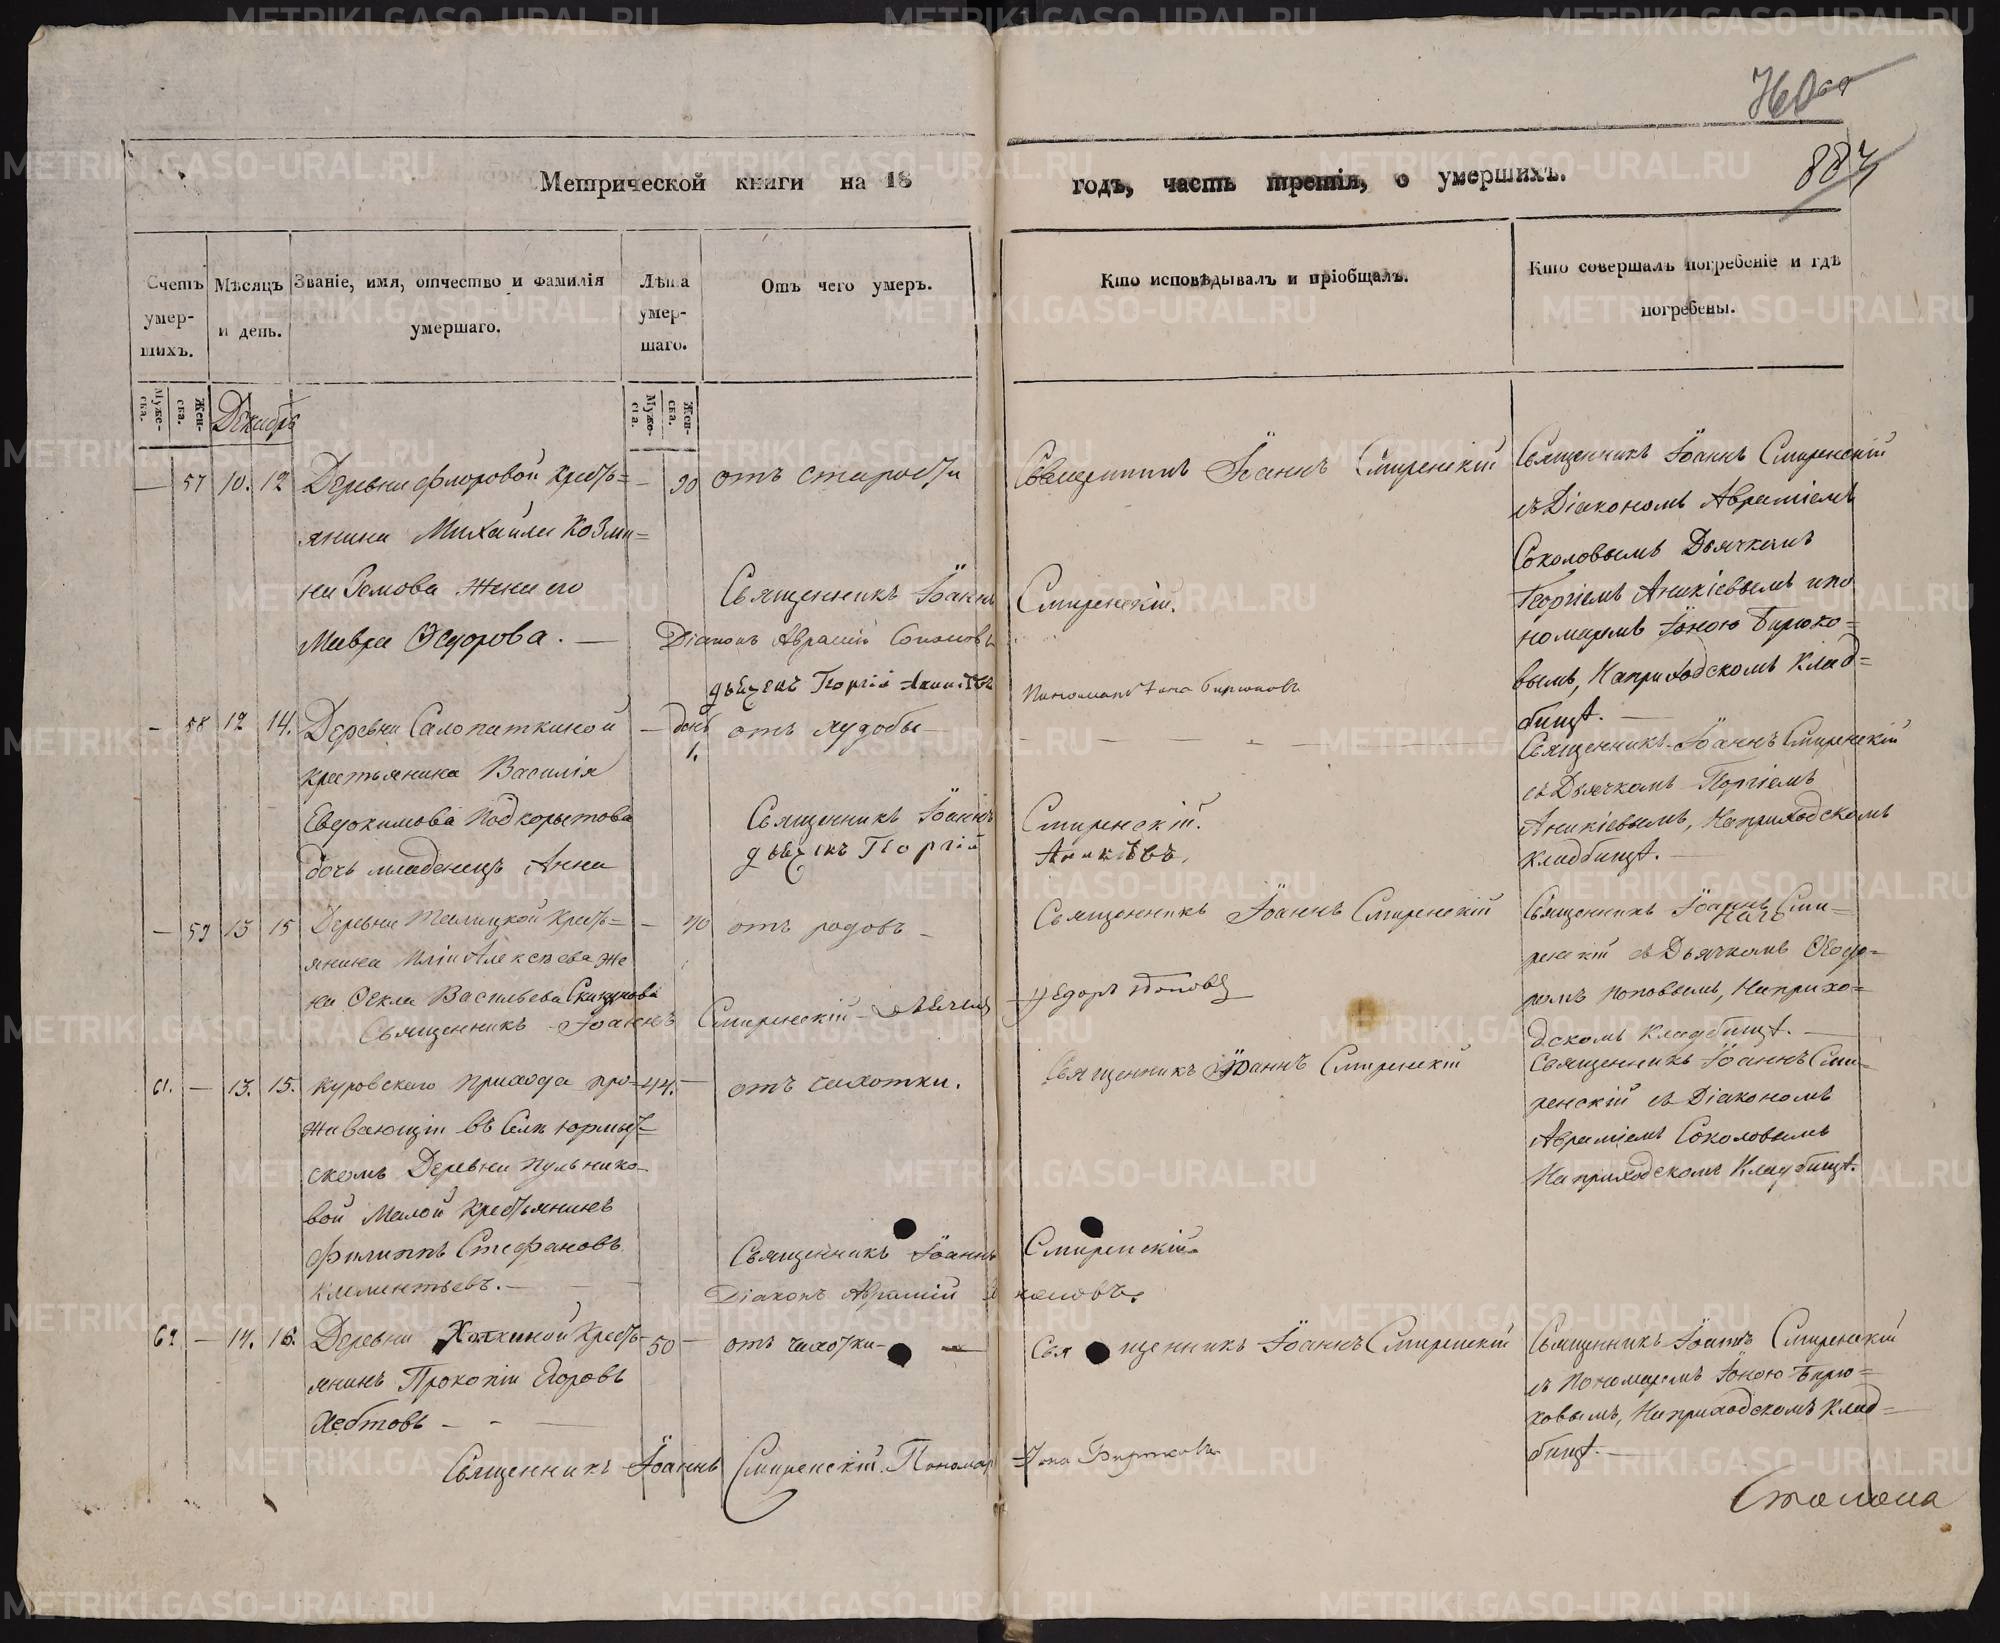 760
884
Метрической книги на 18 годъ, часть третія, о умершихъ.
Счетъ умер-шихъ.
Мѣсяцъ и день.
Званіе, имя, отчество и фамилія умершаго.
Лѣта умер-шаго.
Отъ чего умеръ.
Кто исповѣдывалъ и пріобщалъ.
Кто совершалъ погребеніе и гдѣ погребены.
Муже-ска.
Жен-ска.
Декабрь
Муже-ска.
Жен-ска.
— 57 10. 12 Деревни Флоровой кресть=
янина Михаила Козми=
на Жена его
Мавра Ѳедорова. —
— 90 отъ старости
Священникъ Іоаннъ Смиренскій
Священникъ Іоаннъ Смиренскій
съ Діакономъ Аврамiемъ
Соколовымъ Дьячкомъ
Георгіемъ Аникіевымъ и по
номаремъ Іоною Бирюко=
вымъ, На приходскомъ клад=
бищѣ. —
Священникъ Іоаннъ Смиренскій.
Діаконъ Аврамій Соколовъ
дьячекъ Георгій Аникіевъ Пономарь Іона Бирюковъ
— 58 12 14. Деревни Салопаткиной
крестьянина Василія
Евдокимова Подкорытова
дочь младенецъ Анна
— 1. отъ худобы —
Священникъ Іоаннъ Смиренскій
съ Дьячкомъ Георгіемъ
Аникіевымъ, На приходскомъ
кладбищѣ. —
Священникъ Іоаннъ Смиренскій.
дьячекъ Георгій Аникіевъ.
— 59 13 15 Деревни Талицкой кресть=
янина Алексѣева же
на Ѳекла Васильева
— 40 отъ родовъ —
Священникъ Іоаннъ Смиренскій
Священникъ Іоаннъ Сми=
ренскій съ Дьячкомъ Ѳеодо=
ромъ Поповымъ, На прихо=
дскомъ кладбищѣ. —
Священникъ Іоаннъ Смиренскій — Дьячекъ Ѳедоръ Поповъ
61. — 13. 15. Куровскаго прихода про=
живающій въ Селѣ Юрмыт=
скомъ Деревни Пульнико=
вой Малой крестьянинъ
Филиппъ Стефановъ
Клементьевъ. —
44. — отъ чахотки.
Священникъ Іоаннъ Смиренскій
Священникъ Іоаннъ Сми=
ренскій съ Діакономъ
Аврамiемъ Соколовымъ
На приходскомъ Кладбищѣ.
Священникъ Іоаннъ Смиренскій
Діаконъ Аврамій Соколовъ.
62. — 14. 16. Деревни кресть=
янинъ Прокопій Егоровъ
50 — отъ чахотки — —
Священникъ Іоаннъ Смиренскій
Священникъ Іоаннъ Смиренскій
съ Пономаремъ Іоною Бирю=
ковымъ, На приходскомъ клад=
бищѣ. —
Священникъ Іоаннъ Смиренскій. Пономарь Іона Бирюковъ
METRIKI.GASO-URAL.RU